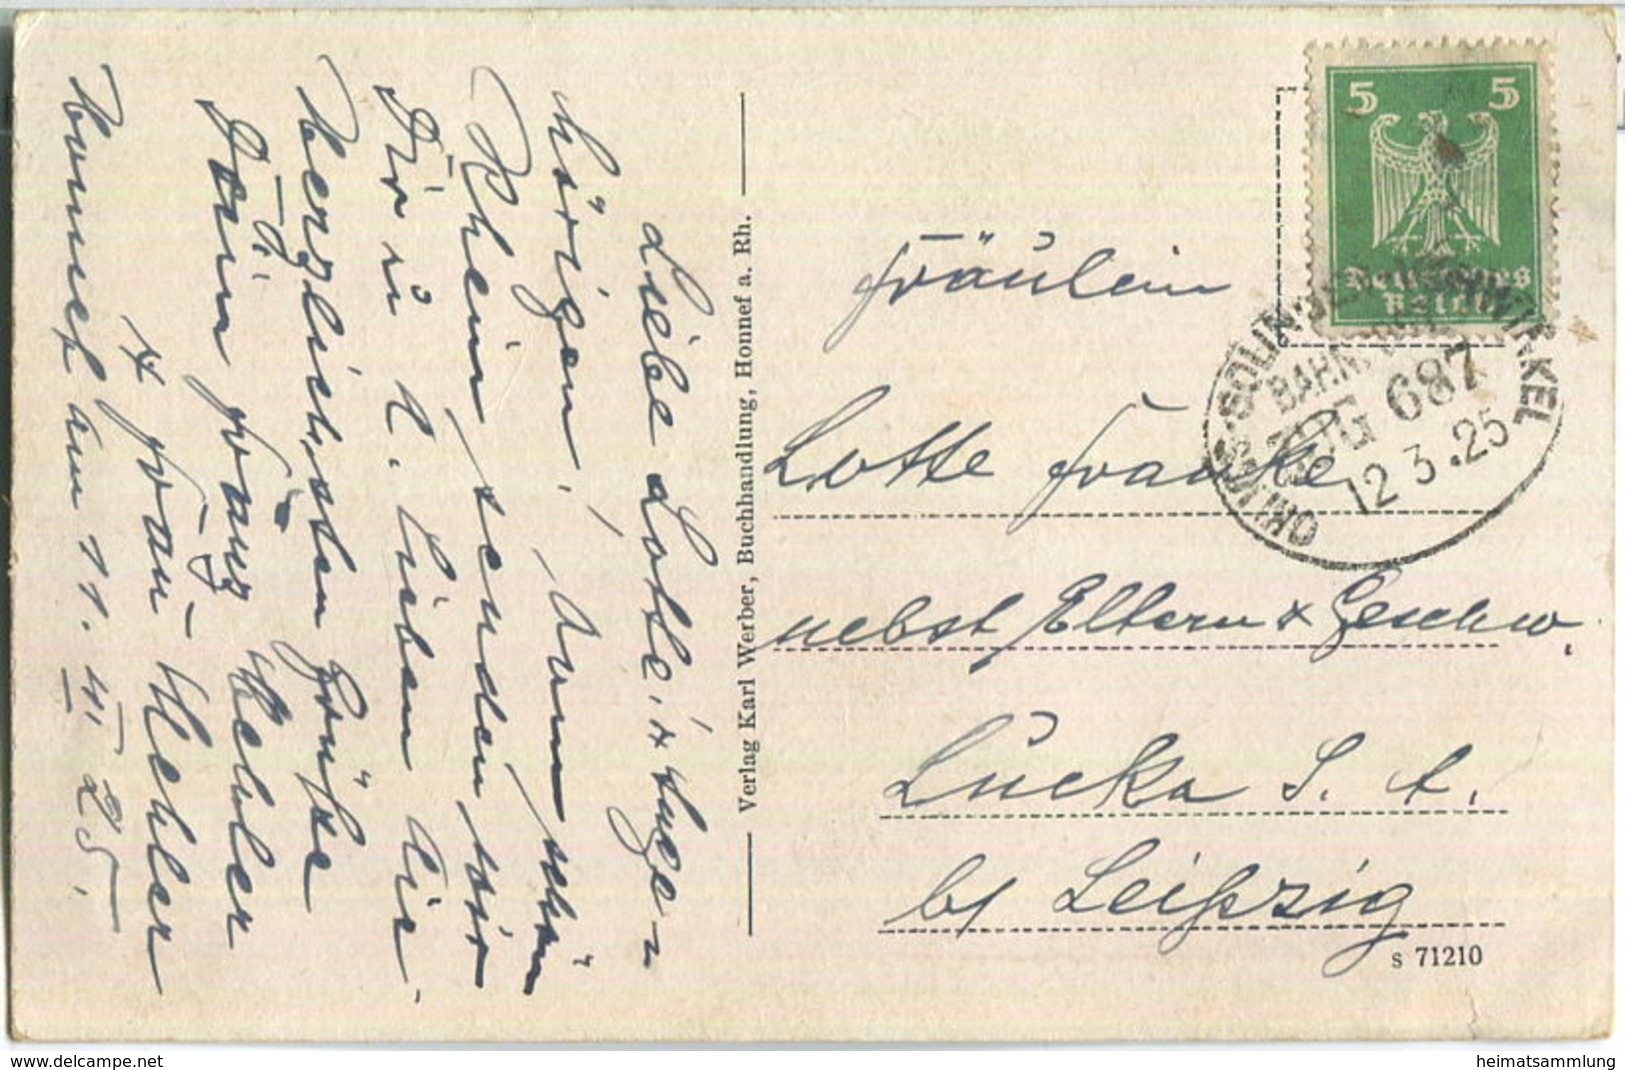 Liebe Lotte! + Angehörigen! Vom schönen
Rhein senden wir
Dir u. l. Eltern die
herzlichsten Grüße
Dein Franz Hehler
+ Frau Hehler
Honnef am 11. III. 25.
Verlag Karl Werber, Buchhandlung, Honnef a. Rh.
5 5
Deutsches
Reich
OHLIGS-SOLINGEN-
BAHNPOST
ZUG 687
12 3.25
Fräulein
Lotte Franke
nebst Eltern + Geschw.
Lucka S. A.
b/ Leipzig
s 71210
delcampe.net
heimatsammlung